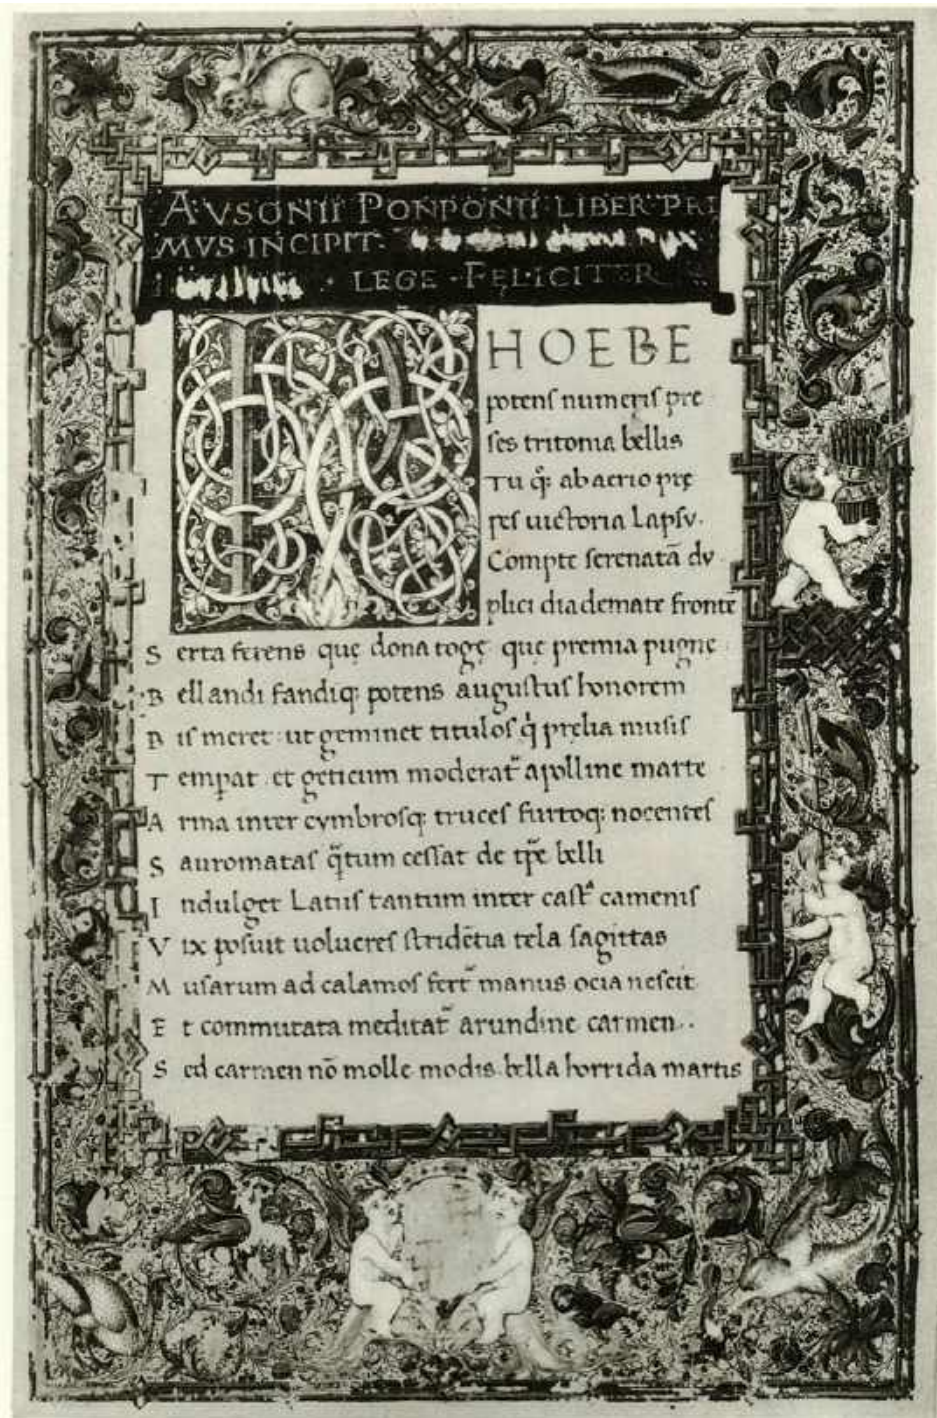 AVSONII PONPONII LIBER PRI
MVS INCIPIT
LEGE · FELICITER
PHOEBE
potens numeris pre
ses tritonia bellis
Tu q; ab aerio prę
pes uictoria Lapsv.
Compte serenatā dv
plici diademate fronte
S erta ferens quę dona togę quę premia pugne
B ellandi fandiq; potens augustus honorem
B is meret ut geminet titulos q̇ prelia musis
T empat et geticum moderat̄ apolline marte
A rma inter cymbrosq; truces furtoq; nocentes
S auromatas q̄tum cessat de tp̄e belli
I ndulget Latiis tantum inter castᵃ camenis
V ix posuit uolucres stridētia tela sagittas
M usarum ad calamos fert̄ manus ocia nescit
E t commutata meditat̄ arundine carmen..
S ed carmen nō molle modis bella horrida martis